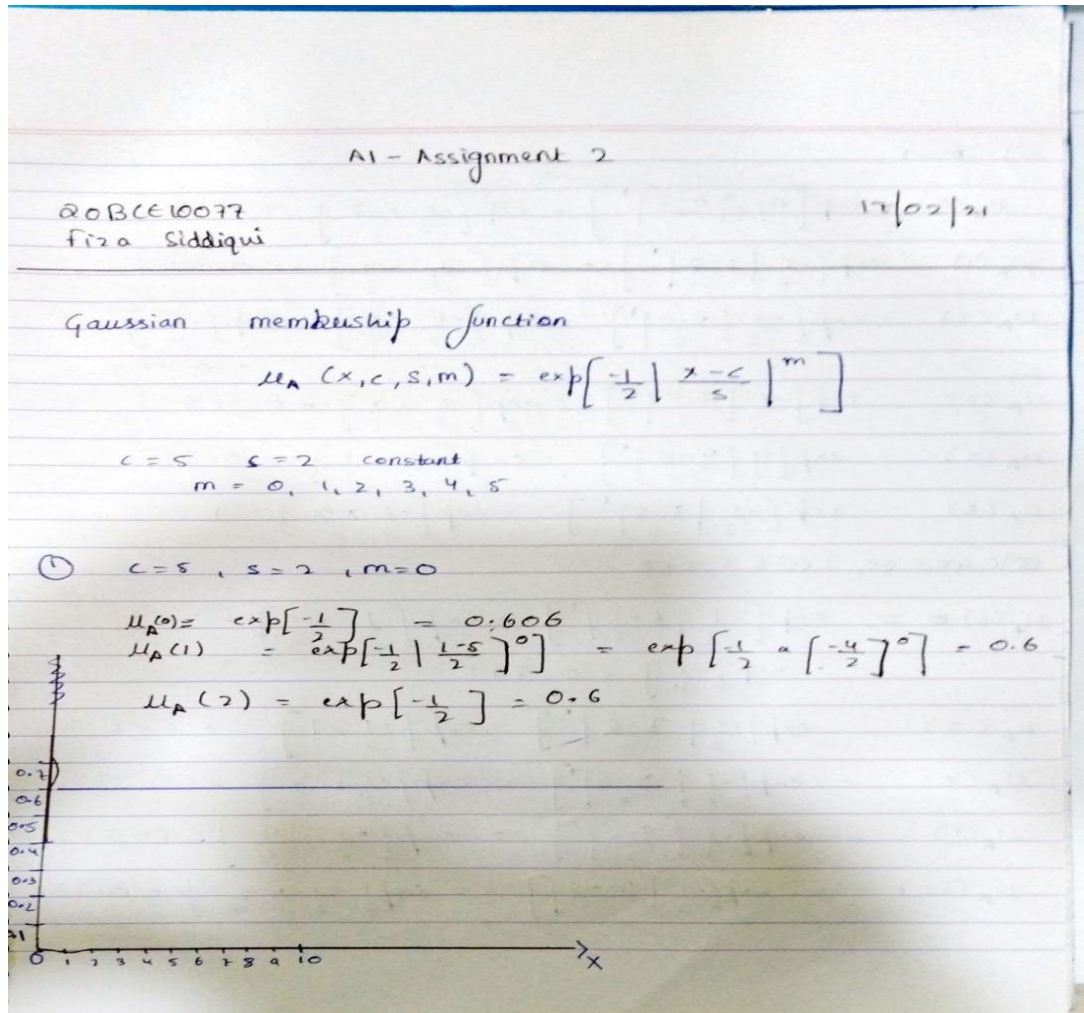 AI - Assignment 2
20BCE10077
17/02/21
Fiza Siddiqui
Gaussian membership function
μA (x,c,s,m) = exp[-1/2 | x-c/s |^m ]
c = 5 s = 2 constant
m = 0, 1, 2, 3, 4, 5
① c = 5 , s = 2 , m = 0
μA(0) = exp[-1/2] = 0.606
μA(1) = exp[-1/2 | 1-5/2 ]^0 ] = exp [-1/2 * [-4/2 ]^0 ] = 0.6
μA (2) = exp [-1/2 ] = 0.6
0.7
0.6
0.5
0.4
0.3
0.2
0 1 2 3 4 5 6 7 8 9 10 x